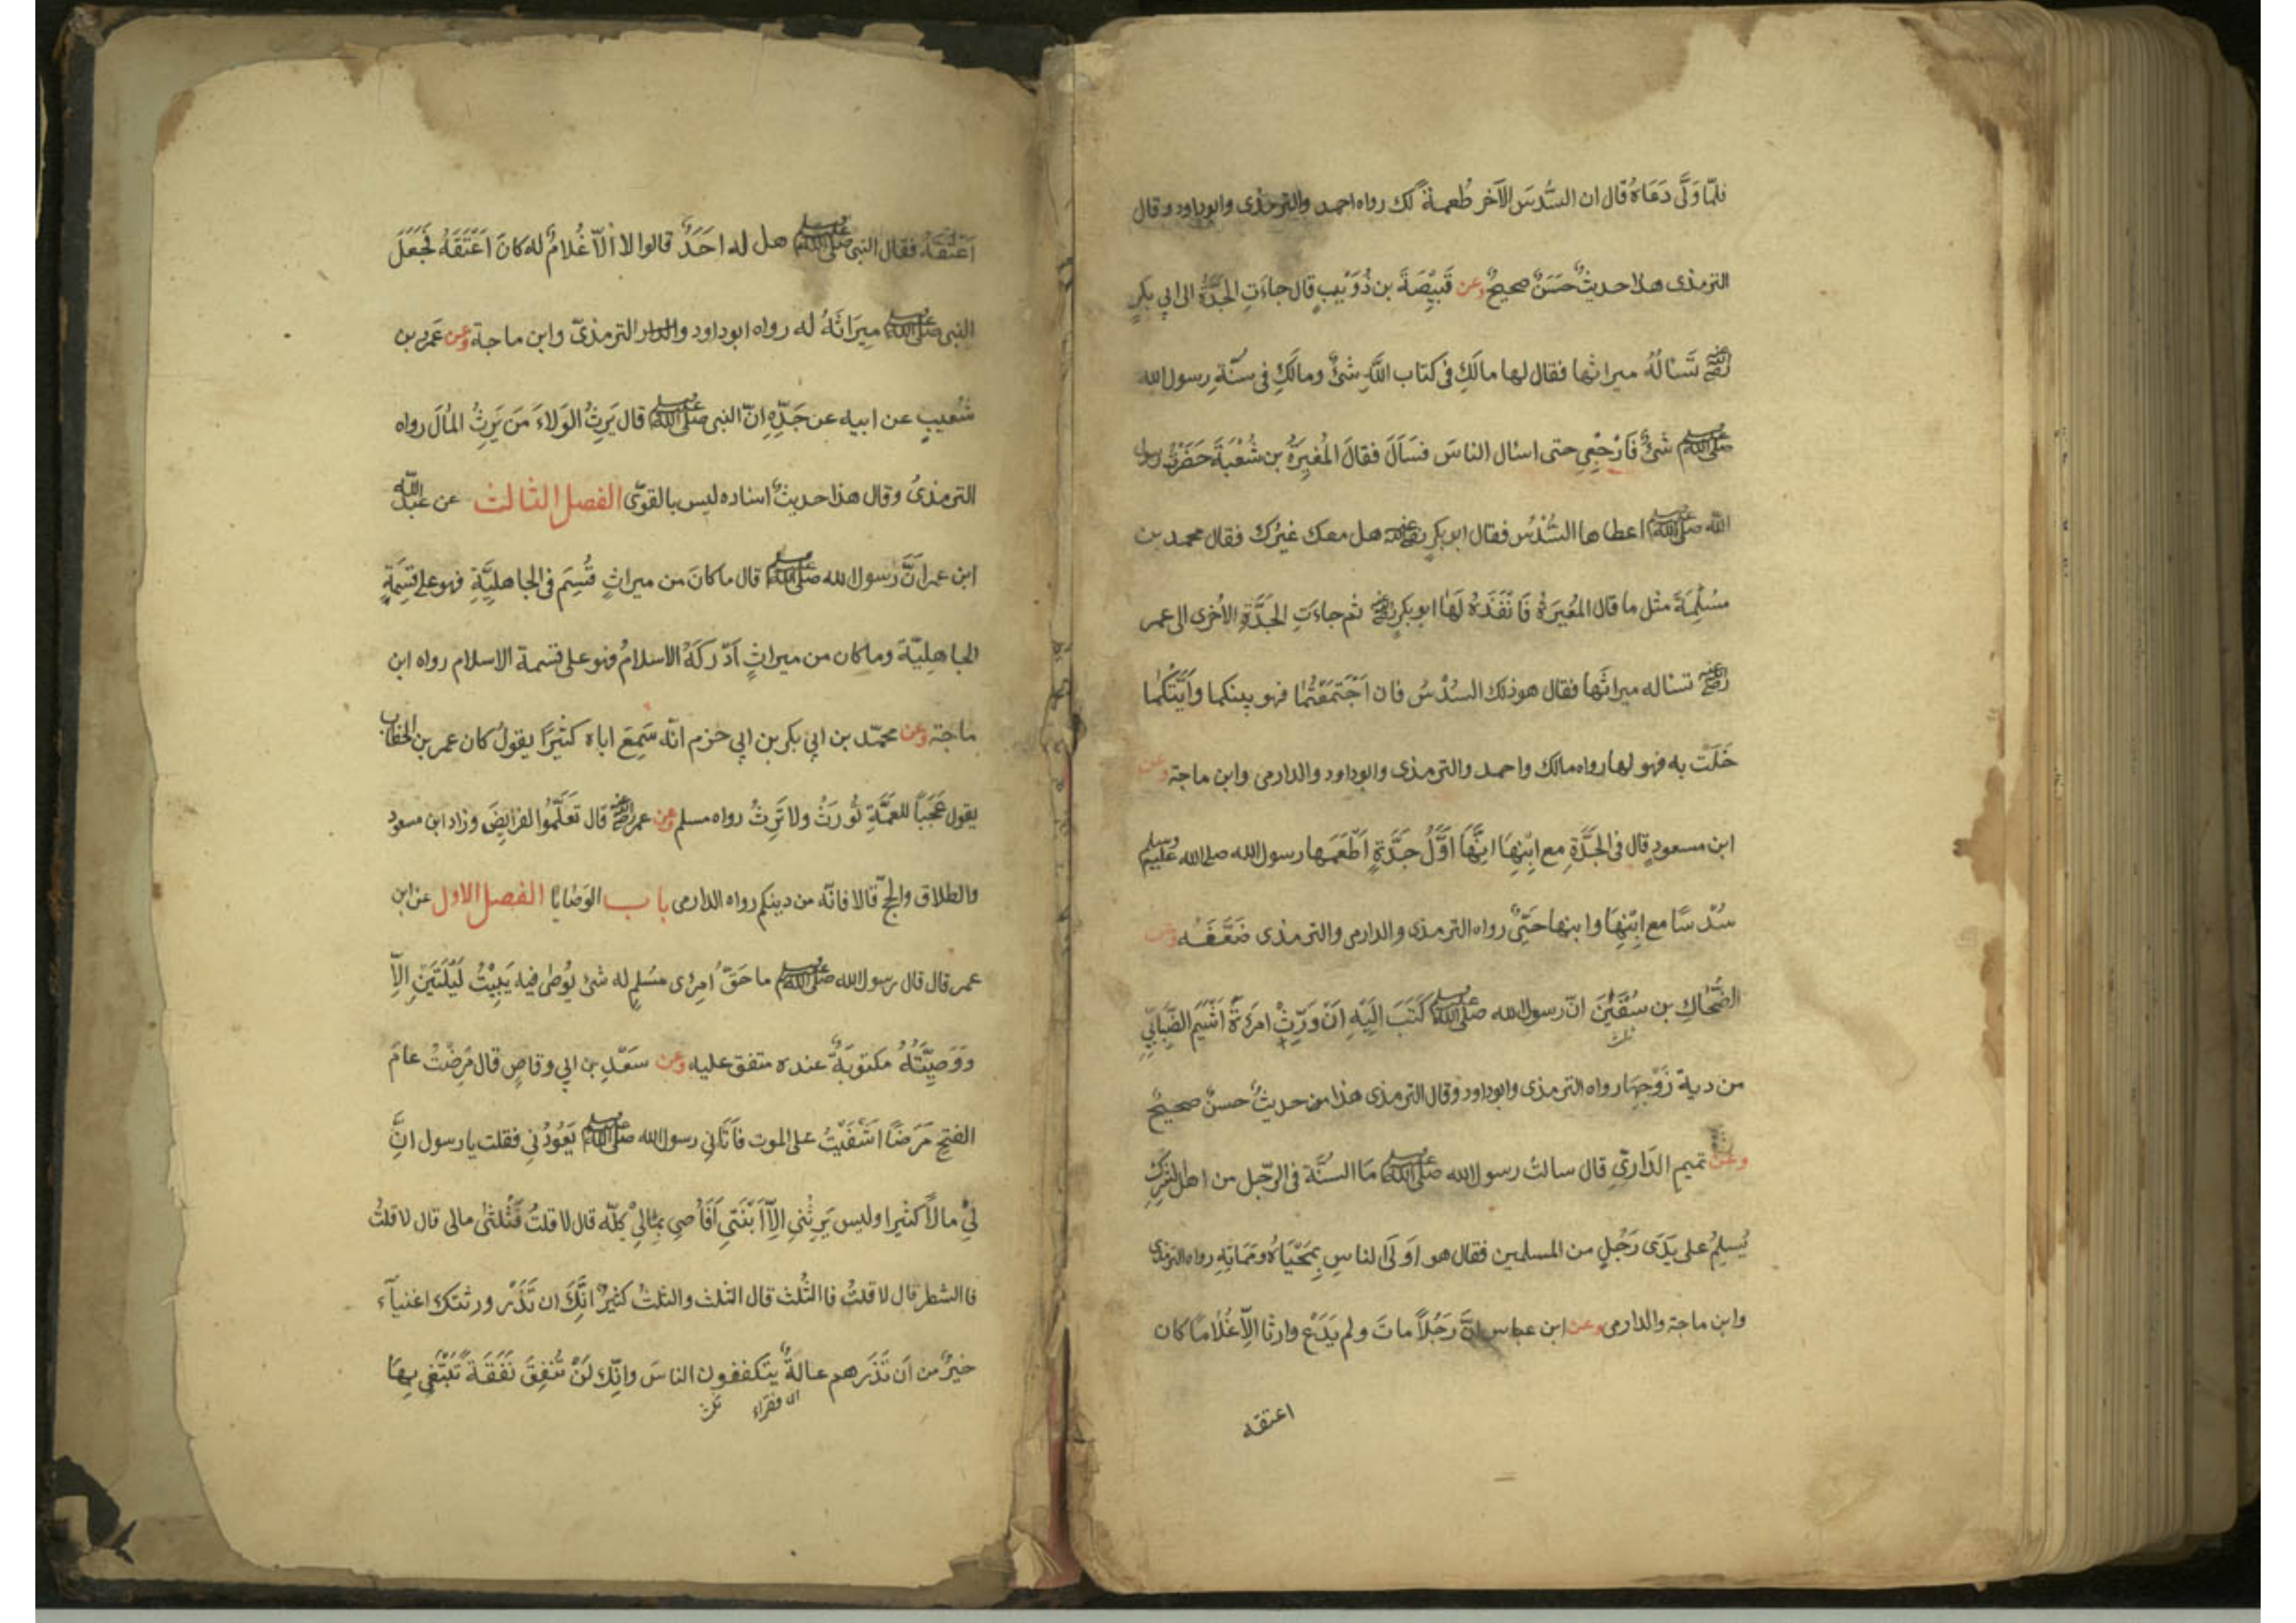 فلمّا وَلَّى دَعَاهُ قال ان السُّدسَ الآخر طُعمةٌ لك رواه احمد والترمذى وابوداود وقال
الترمذى هذا حديثٌ حَسَنٌ صحيحٌ وعن قَبِيْصَةَ بن ذُوَيْبٍ قال جاءَتِ الجَدَّةُ الى ابي بكرٍ
رضي الله عنه تَسْالُهُ ميراثها فقال لها مالَكِ في كتاب اللّهِ شئٌ ومالَكِ في سنّةِ رسول الله
صلى الله عليه وسلم شئٌ فَارْجِعِي حتى اسئال الناسَ فَسَاَلَ فقالَ المُغيرَةُ بن شُعْبَةَ حَضَرْتُ رسول
الله صلى الله عليه وسلم اعطاها السُّدْسَ فقال ابو بكرٍ رضي الله عنه هل معك غيرُك فقال محمد بن
مَسْلِمَةَ مثل ما قال المُغيرَةُ فَاَنْفَذَهُ لَهَا ابو بكرٍ رضي الله عنه ثم جاءَتِ الجَدَّةِ الاُخرى الى عمر
رضي الله عنه تسئاله ميراثَها فقال هو ذلك السُدْسُ فان اجْتَمَعْتُمَا فهو بينكما وَاَيَّتُكُمَا
خَلَتْ به فهو لها رواه مالك واحمد والترمذى وابوداود والدارمى وابن ماجة وعن
ابن مسعودٍ قال فى الجَدَّةِ مع ابْنِهَا انَّهَا اَوَّلُ جَدَّةٍ اَطْعَمَها رسول الله صلى الله عليه وسلم
سُدْسًا مع ابْنِهَا وابنها حَيٌّ رواه الترمذى والدارمى والترمذى ضَعَّفَه وعن
الضَّحَّاكِ بن سُفْيٰنَ انّ رسول الله صلى الله عليه وسلم كَتَبَ اِلَيْهِ اَنْ وَرِّثْ امرَءَةَ اَشْيَمَ الضِّبَابِيِّ
من دية زَوْجِهَا رواه الترمذى وابوداود وقال الترمذى هذا حديثٌ حسنٌ صحيحٌ
وعن تميم الدَّارِيِّ قال سالتُ رسول الله صلى الله عليه وسلم مَا السُنَّة فى الرّجل من اهل الشِّركِ
يُسلِمُ على يَدَى رَجُلٍ من المسلمين فقال هو اَوْلَى الناسِ بِمَحْيَاهُ ومَمَاتِهِ رواه الترمذى
وابن ماجة والدارمى وعن ابن عباس انَّ رَجُلاً ماتَ ولم يَدَعْ وارثا الاّ غُلامًا كان
اعتقه
اَعْتَقَهُ فقال النبى صلى الله عليه وسلم هل له اَحَدٌ قالوا لا الّا غُلامٌ له كانَ اَعْتَقَهُ فَجَعَلَ
النبى صلى الله عليه وسلم ميرَاثَهُ له رواه ابوداود والترمذىّ وابن ماجة وعن عَمرِو بن
شُعيبٍ عن ابيه عن جَدِّهِ انّ النبى صلى الله عليه وسلم قال يَرِثُ الوَلاءَ مَنَ يَرِثُ المالَ رواه
الترمذىُ وقال هذا حديثٌ اسناده ليس بالقوّى الفصل الثالث عن عبد الله
ابن عمر انَّ رسول الله صلى الله عليه وسلم قال ما كانَ من ميراثٍ قُسِمَ فى الجاهليَّةِ فهو على قِسْمَةٍ
الجاهِليّة وما كان من ميراثٍ اَدْرَكَهُ الاسلامُ فهو على قسمة الاسلام رواه ابن
ماجة وعن محمّد بن ابي بكر بن ابي حزم انّه سَمِعَ اباه كثيرًا يقولُ كان عمر بن الخطاب
يقول عَجَبًا للعَمَّةِ تُورَثُ ولا تَرِثُ رواه مسلم وعن عمر رضي الله عنه قال تَعَلَّمُوا الفرائِضَ وزاد ابن مسعود
والطلاق والحجّ قالا فانّه من دينكم رواه الدارمى باب الوَصَايَا الفصل الاول عن ابن
عمر قال قال رسول الله صلى الله عليه وسلم ما حَقّ امرِئ مسْلمٍ له شئ يُوْطى فيه يَبِيْتُ لَيْلَتَينِ الاّ
وَوَصِيَّتُهُ مكتوبَةٌ عنده متفق عليه وعن سَعْدِ بن ابي وقاصٍ قال مَرِضْتُ عامَ
الفتحِ مَرَضًا اشْفَيْتُ على الموت فاَتَانِي رسول الله صلى الله عليه وسلم يَعُوْدُنِي فقلت يا رسول انَّ
لِيْ مالاً كثيرا وليس يَرِثُنِي الاّ ابْنَتِي اَفَاُ صِي بمَالِيْ كلّه قال لا قلتُ فَثُلثَىْ مالى قال لا قلتُ
فاالشطر قال لا قلتُ فاالثُلث قال الثلث والثلثُ كثيرٌ انَّكَ ان تَذَرْ ورثتك اغنياآء
خيرٌ من اَن تَذَرَهم عالةً يتكففون الناسَ وانّك لَنْ تُنفِقَ نَفَقَةً تَبْتَغِى بِهَا
اى فقراء